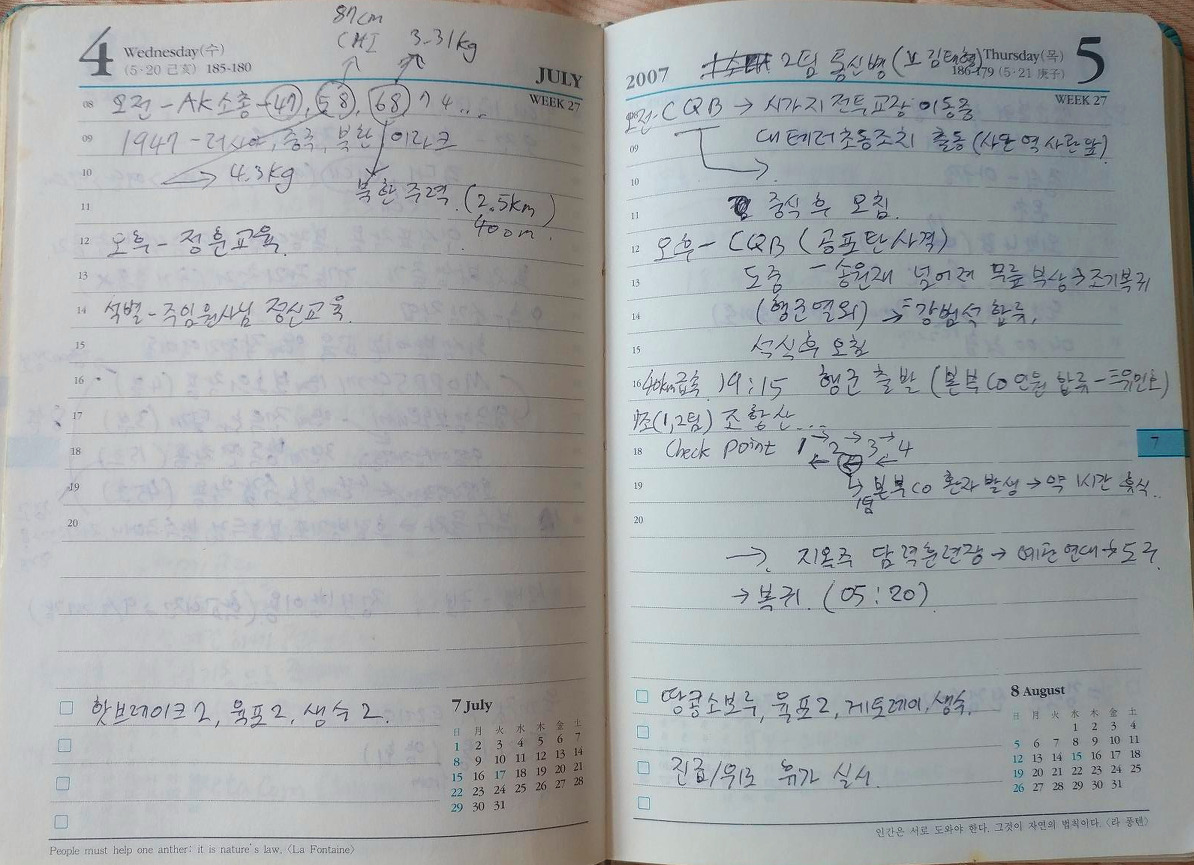 87cm
CHI 3.31kg
4 Wednesday(수)
(5·20 己亥) 185-180
JULY
WEEK 27
08 오전 - AK소총 - 47, 58, 68, 74...
09 1947 - 러시아, 중국, 북한, 이라크
10 → 4.3kg
북한 주력. (2.5km)
11 400m.
12 오후 - 정훈교육.
13
14 석별 - 주임원사님 정신교육.
15
16
17
18
19
20
핫브레이크 2, 육포 2, 생수 2.
7 July
日 月 火 水 木 金 土
1 2 3 4 5 6 7
8 9 10 11 12 13 14
15 16 17 18 19 20 21
22 23 24 25 26 27 28
29 30 31
People must help one anther: it is nature's law. (La Fontaine)
2007 2팀 통신병 (김태형) Thursday(목) 5
186-179 (5·21 庚子)
WEEK 27
오전 - CQB → 시가지전투교장 이동중
09 대테러초동조치 출동 (사단 역사관앞)
10
11 중식 후 오침.
12 오후 - CQB (공포탄사격)
13 도중 - 송원재 넘어져 무릎 부상 → 조기복귀
14 (행군열외) → 강범석 합류.
15 석식 후 오침
16 40km급속 19:15 행군 출발 (본부co 인원 합류 - 유민호)
(1,2팀) 조항산...
18 Check Point 1 → 2 → 3 → 4
← ← ←
19 → 본부co 환자발생 → 약 1시간 휴식..
20
→ 지옥주 담력훈련장 → 예관연대 → 도구
→ 복귀. (05:20)
땅콩소보루, 육포2, 게토레이, 생수.
진급/위로 휴가 실시.
7
8 August
日 月 火 水 木 金 土
1 2 3 4
5 6 7 8 9 10 11
12 13 14 15 16 17 18
19 20 21 22 23 24 25
26 27 28 29 30 31
인간은 서로 도와야 한다. 그것이 자연의 법칙이다. (라 퐁텐)